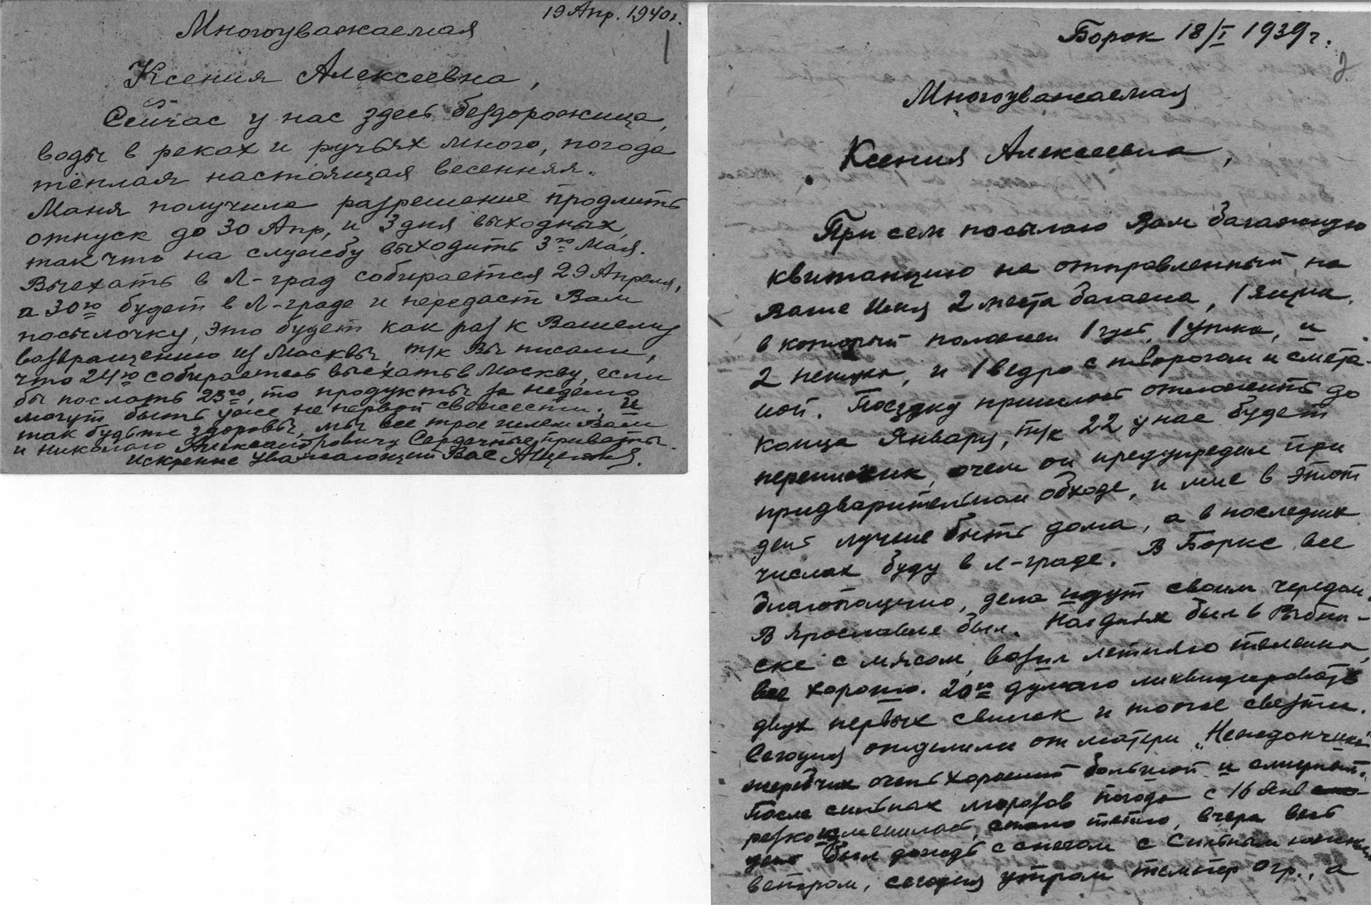 19 Апр. 1940г.
1
Многоуважаемая
Ксения Алексеевна,
Сейчас у нас здесь бездорожица,
воды в реках и ручьях много, погода
тёплая настоящая весенняя.
Маня получила разрешение продлить
отпуск до 30 Апр, и 3 дня выходных,
так что на службу выходить 3го Мая.
Выехать в Л-град собирается 29 Апреля,
а 30го будет в Л-граде и передаст Вам
посылочку, это будет как раз к Вашему
возвращению из Москвы, т/к Вы писали,
что 24го собираетесь выехать в Москву, если
бы послать 23го, то продукты за неделю
могут быть уже не первой свежести, и
так будьте здоровы, мы все трое шлем Вам
и Николаю Александровичу Сердечные приветы.
Искренне уважающий Вас
Борок 18/I 1939г.
2
Многоуважаемая
Ксения Алексеевна,
При сем посылаю Вам багажную
квитанцию на отправленный на
Ваше Имя 2 места багажа, 1 ящик
в который положен 1 гусь, 1 утка, и
2 петуха, и 1 ведро с творогом и смета
ной. Поездку пришлось отложить до
конца Январу, т/к 22 у нас будет
переписчик, о чем он предупредил при
придварительном обходе, и мне в этот
день лучше быть дома, а в последних
числах буду в Л-граде. В Борке все
благополучно, дела идут своим чередом.
В Ярославле был. На днях был в Рыбин-
ске с мясом, возил летняго теленка,
все хорошо. 20го думаю ликвидировать
двух первых свинок и тоже свезти.
Сегодня отделили от матери
жеребчик очень хороший большой и
После сильных морозов погода с 16 Янв
резко изменилась, стало тепло, вчера весь
день был дождь с снегом с сильным
ветром, сегодня утром темпер 0гр., а